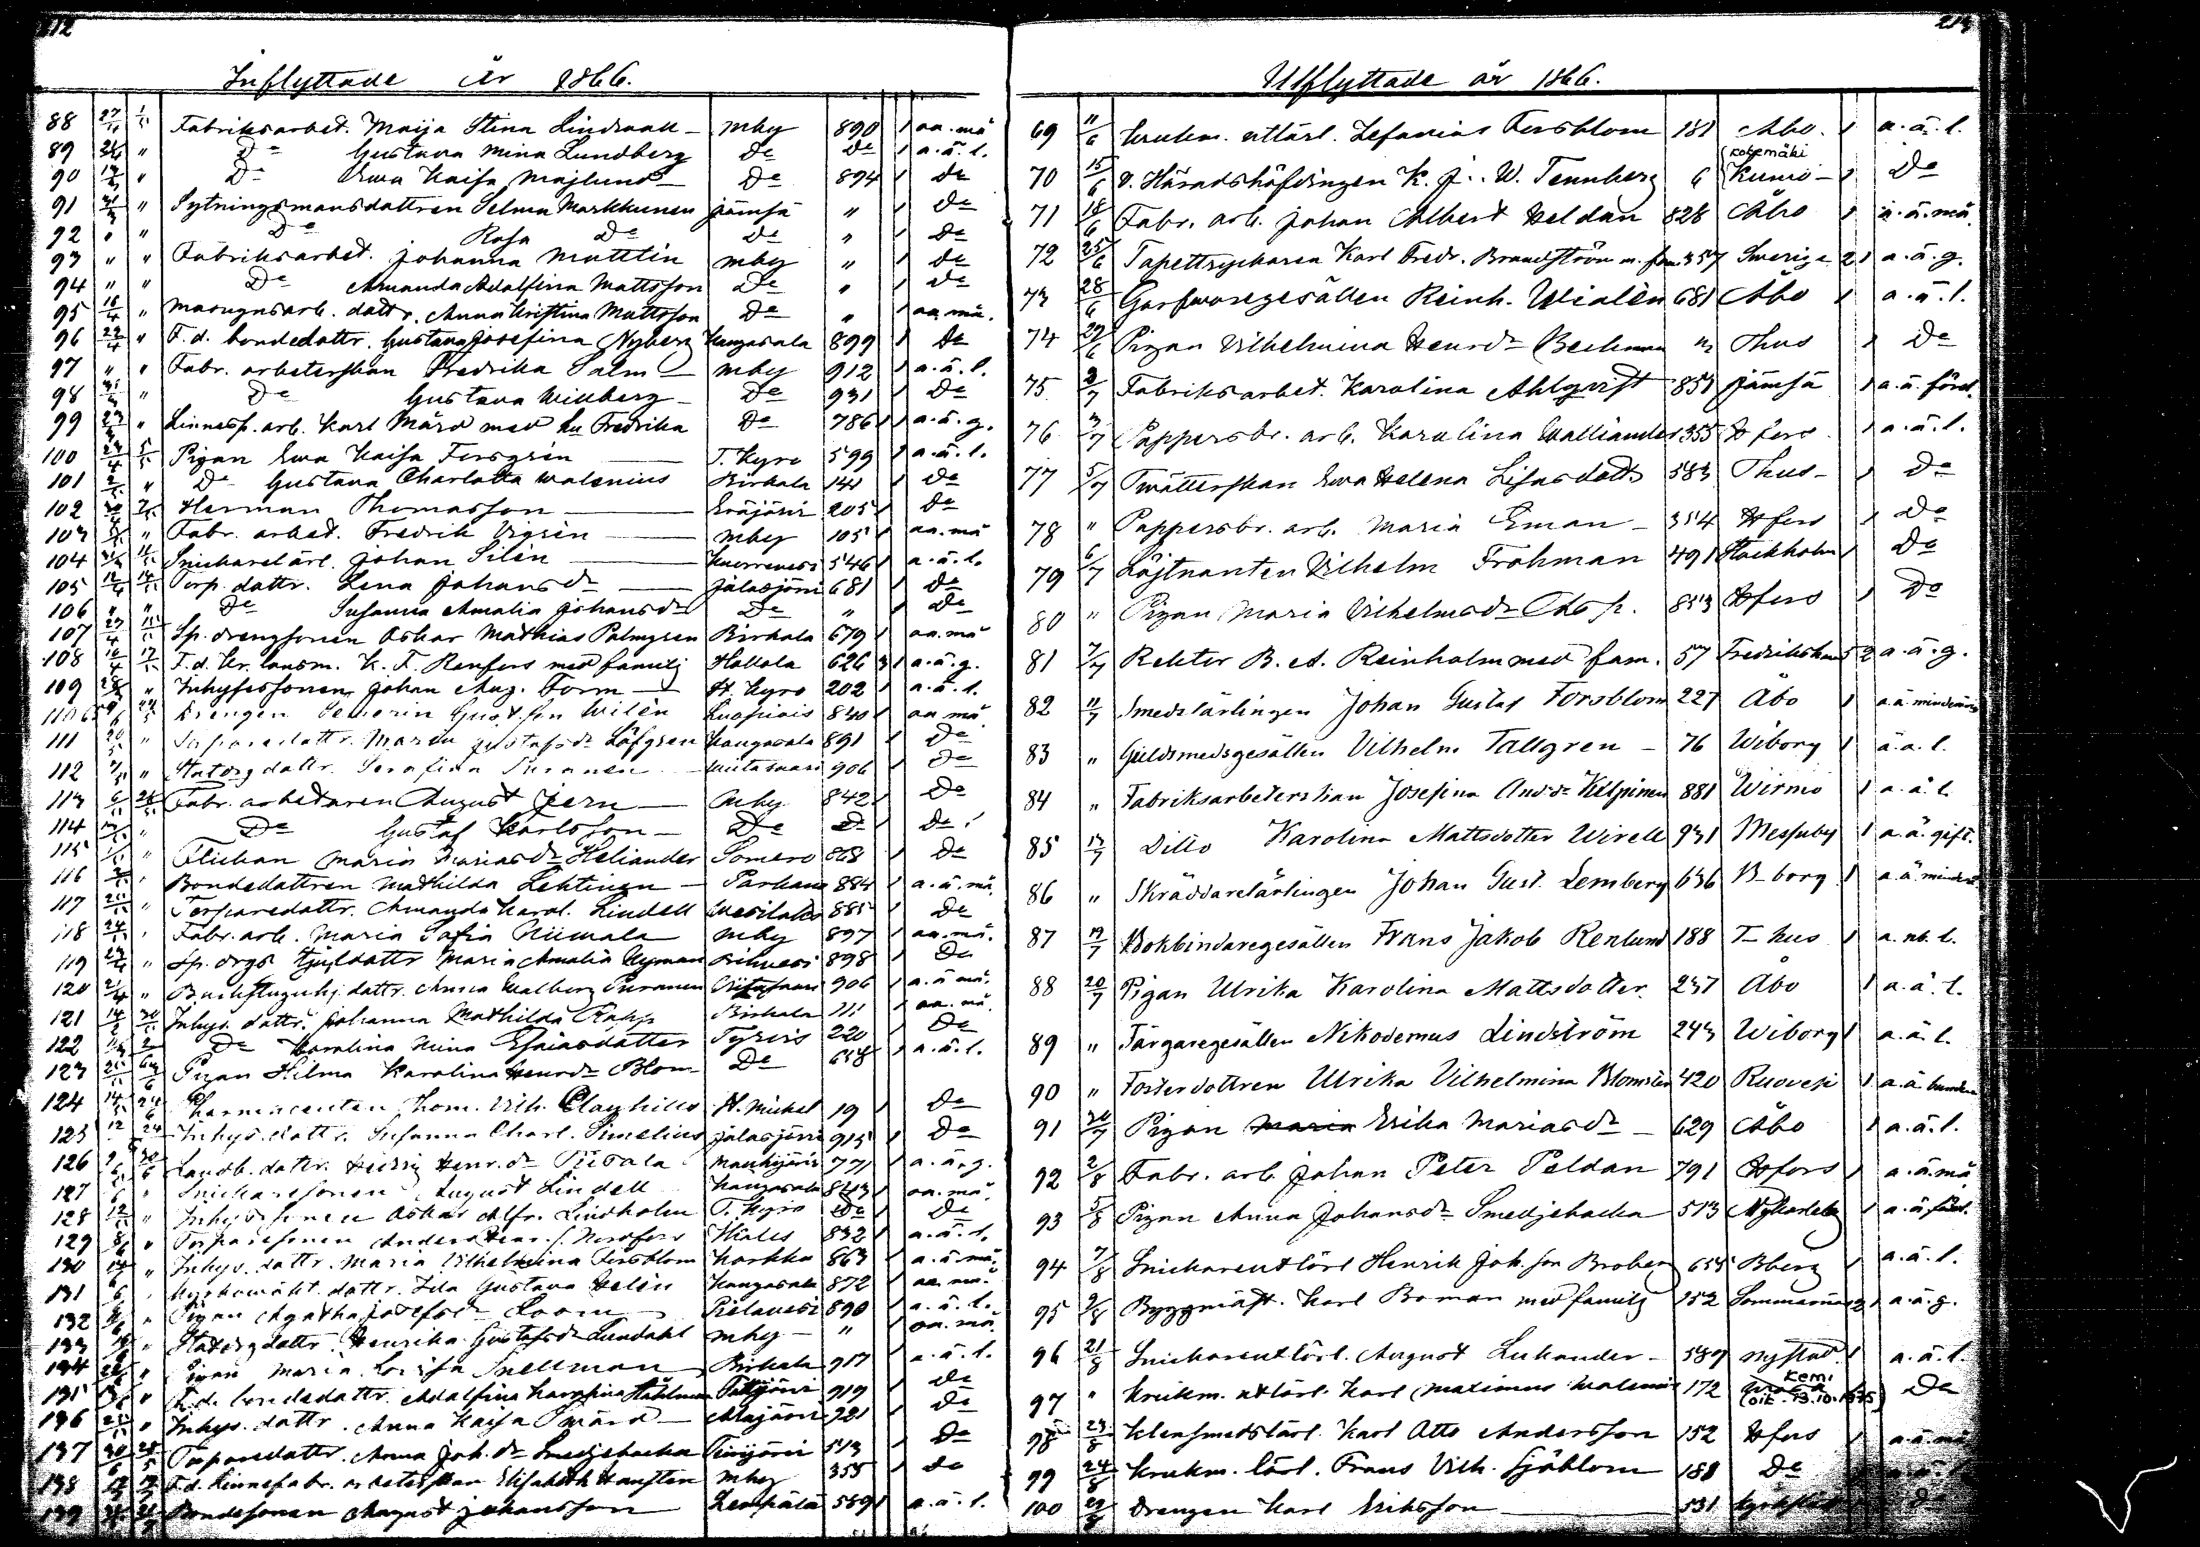 212
Inflyttade år 1866.
88 27/4 1/5 Fabriksarbet. Maija Stina Lindvall - mby 890 1 aa. må
89 " Do Gustava Mina Lundberg Do Do 1 a.ä.l.
90 " Do Ewa Kaisa Majlund Do 894 1 Do
91 " Sytningsmansdattren Selma Markkunen Jämsä " 1 Do
92 " " Do Rosa Do Do " 1 Do
93 " " Fabriksarbet. Johanna Mattlin mby " 1 Do
94 " " Do Amanda Adolfina Mattsson Do " 1 Do
95 " Masugnsarb. dattr. Anna Kristina Mattsson Do " 1 aa. må.
96 " F.d. bondedattr. Gustava Josefina Nyberg Kangasala 899 1 Do
97 " " Fabr. arbeterskan Fredrika Salm mby 912 1 a.ä.l.
98 " Do Gustava Willberg - Do 931 1 Do
99 " Linnesp. arb. Karl Mård med hu Fredrika Do 786 1 1 a.ä.g.
100 Pigan Ewa Kaisa Forsgrén T. Kyro 599 1 a.ä.l.
101 " Do Gustava Charlotta Walenius Birkala 141 1 Do
102 Herman Thomasson Eräjärvi 205 1 Do
103 " Fabr. arbet. Fredrik Vigrén mby 105 1 aa. må
104 Snickarelärl. Johan Silén Kuorevesi 546 1 a.ä.l.
105 Torp. dattr. Lena Johansdr Jalasjärvi 681 1 Do
106 " " Do Susanna Amalia Johansdr Do " 1 Do
107 Sp. drengsonen Oskar Mathias Palmgren Birkala 679 1 aa. må
108 F.d. Kr. länsm. K. F. Renfors med familj Hollola 626 3 1 a.ä.g.
109 " Inhysessonen Johan Aug. Form H. Kyro 202 1 a.ä.l.
110 Drengen Severin Gust.son Wilén 840 1 aa. må.
111 " Torparedattr. Maria Gustafsdr Löfgren Kangasala 891 1 Do
112 " Statdrg dattr. Serafina Puranen 906 1 Do
113 Fabr. arbetaren August Jern mby 842 1 Do
114 " Do Gustaf Karlsson - Do Do 1 Do
115 " Flickan Maria Mariasdr Heliander Somero 868 1 Do
116 " Bondedattren Mathilda Lehtinen - Parkano 884 1 a.ä. må.
117 " Torparedattr. Amanda Karol. Lindell Wesilaks 885 1 Do
118 " Fabr. arb. Maria Sofia Niemala mby 897 1 aa. må.
119 " dattr Maria Amalia Nyman 898 1 Do
120 " dattr. Anna Walborg Puranen 906 1 a.ä. må.
121 Inhys. dattr. Johanna Mathilda Rapp Birkala 111 1 aa. må.
122 Do Karolina Mina Esaiasdotter Tyrvis 220 1 Do
123 Pigan Hilma Karolina Henrdr Blom Do 658 1 a.ä.l.
124 Farmaceuten Thom. Vilh. Clayhills St. Michel 19 1 Do
125 Inhys. dattr. Susanna Charl. Simelius Jalasjärvi 915 1 Do
126 Landb. dattr. Henr.dr 771 1 a.ä.g.
127 " Snickaresonen August Lindell Kangasala 843 1 aa. må.
128 " Inhysessonen Oskar Alfr. Lindholm T. Kyro Do 1 Do
129 " Torparesonen Anders Henr.s. Nordfors 832 1 a.ä.l.
130 " Inhys. dattr. Maria Vilhelmina Forsblom Karkku 863 1 a.ä. må.
131 dattr. Ida Gustava Helén Kangasala 872 1 aa. må.
132 " Pigan Agatha Josefsdr Loom Pielavesi 890 1 a.ä.l.
133 " Statdrg dattr. Henrika Gustafsdr Lundahl mby - " 1 aa. må.
134 " Pigan Maria Lovisa Snellman Birkala 917 1 a.ä.l.
135 " F.d. bondedattr. Adolfina Karolina Ståhlman 919 1 Do
136 " Inhys. dattr. Anna Kaisa Swärd - Alajärvi 921 1 Do
137 Torparedattr. Anna Joh.dr Smedjebacka 513 1 Do
138 F.d. Linnefabr. arbeterskan Elisabeth Hansten mby 355 1 Do
139 Bondesonen August Johansson Lempälä 589 1 a.ä.l.
213
Utflyttade år 1866.
69 11/6 Krukm. utlärl. Zefanias Forsblom 181 Åbo. 1 a.ä.l.
Kokemäki
70 15/6 v. Häradshöfdingen K. J. W. Tennberg 6 Kumo - 1 Do
71 18/6 Fabr. arb. Johan Albert Heldán 828 Åbo 1 a.ä. må.
72 25/6 Tapettryckaren Karl Fredr. Brandström m. fam. 357 Sverige 2 1 a.ä.g.
73 28/6 Garfwaregesällen Reinh. Uialén 681 Åbo 1 a.ä.l.
74 29/6 Pigan Vilhelmina Henrdr Beckman Thus 1 Do
75 3/7 Fabriksarbet. Karolina Ahlqvist 853 Jämsä 1 a.ä. förl.
76 3/7 Pappersbr. arb. Karolina Walliander 355 Hfors 1 a.ä.l.
77 5/7 Twätterskan Ewa Helena Lisasdotts 583 Thus - 1 Do
78 " Pappersbr. arb. Maria Eman - 354 Hfors 1 Do
79 6/7 Löjtnanten Vilhelm Frohman 491 Stockholm 1 Do
80 " Pigan Maria Vilhelmsdr 853 Hfors 1 Do
81 7/7 Rektor B. A. Reinholm med fam. 57 Fredrikshamn 5 2 a.ä.g.
82 11/7 Smedslärlingen Johan Gustaf Forsblom 227 Åbo 1 a.ä. minderårig
83 " Guldsmedsgesällen Vilhelm Tallgren - 76 Wiborg 1 a.ä.l.
84 " Fabriksarbeterskan Josefina Andsdr Kelpinen 881 Wirmo 1 a.ä.l.
85 13/7 Ditto Karolina Mattsdotter Wirell 931 Messuby 1 a.ä. gift.
86 " Skräddarelärlingen Johan Gust. Lemberg 636 B-borg 1 a.ä. minderå.
87 19/7 Bokbindaregesällen Frans Jakob Renlund 188 T-hus 1 a. nb. l.
88 20/7 Pigan Ulrika Karolina Mattsdotter 237 Åbo 1 a.ä.l.
89 " Färgaregesällen Nikodemus Lindström 243 Wiborg 1 a.ä.l.
90 " Fosterdottren Ulrika Vilhelmina Blomster 420 Ruovesi 1 a.ä.
91 Pigan Maria Erika Mariasdr - 629 Åbo 1 a.ä.l.
92 2/8 Fabr. arb. Johan Peter Peldan 791 Hfors 1 a.ä. må
93 5/8 Pigan Anna Johansdr Smedjebacka 513 Nykarleby 1 a.ä. förl.
94 7/8 Snickareutlärl Henrik Joh.son Broberg 655 Bberg 1 a.ä.l.
95 9/8 Byggmäst. Karl Boman med familj 152 1 a.ä.g.
96 21/8 Snickareutlärl. August Lukander - 589 Nystad. 1 a.ä.l.
Kemi
97 " Krukm. utlärl. Karl Maximus Walenius 172 (oik. 13.10.1975) Do
98 23/8 Klensmedslärl. Karl Otto Andersson 152 Hfors 1 a.ä. må
99 24/8 Krukm. lärl. Frans Vilh. Sjöblom 181 Do a.ä.l.
100 29/8 Drengen Karl Eriksson 531 Do